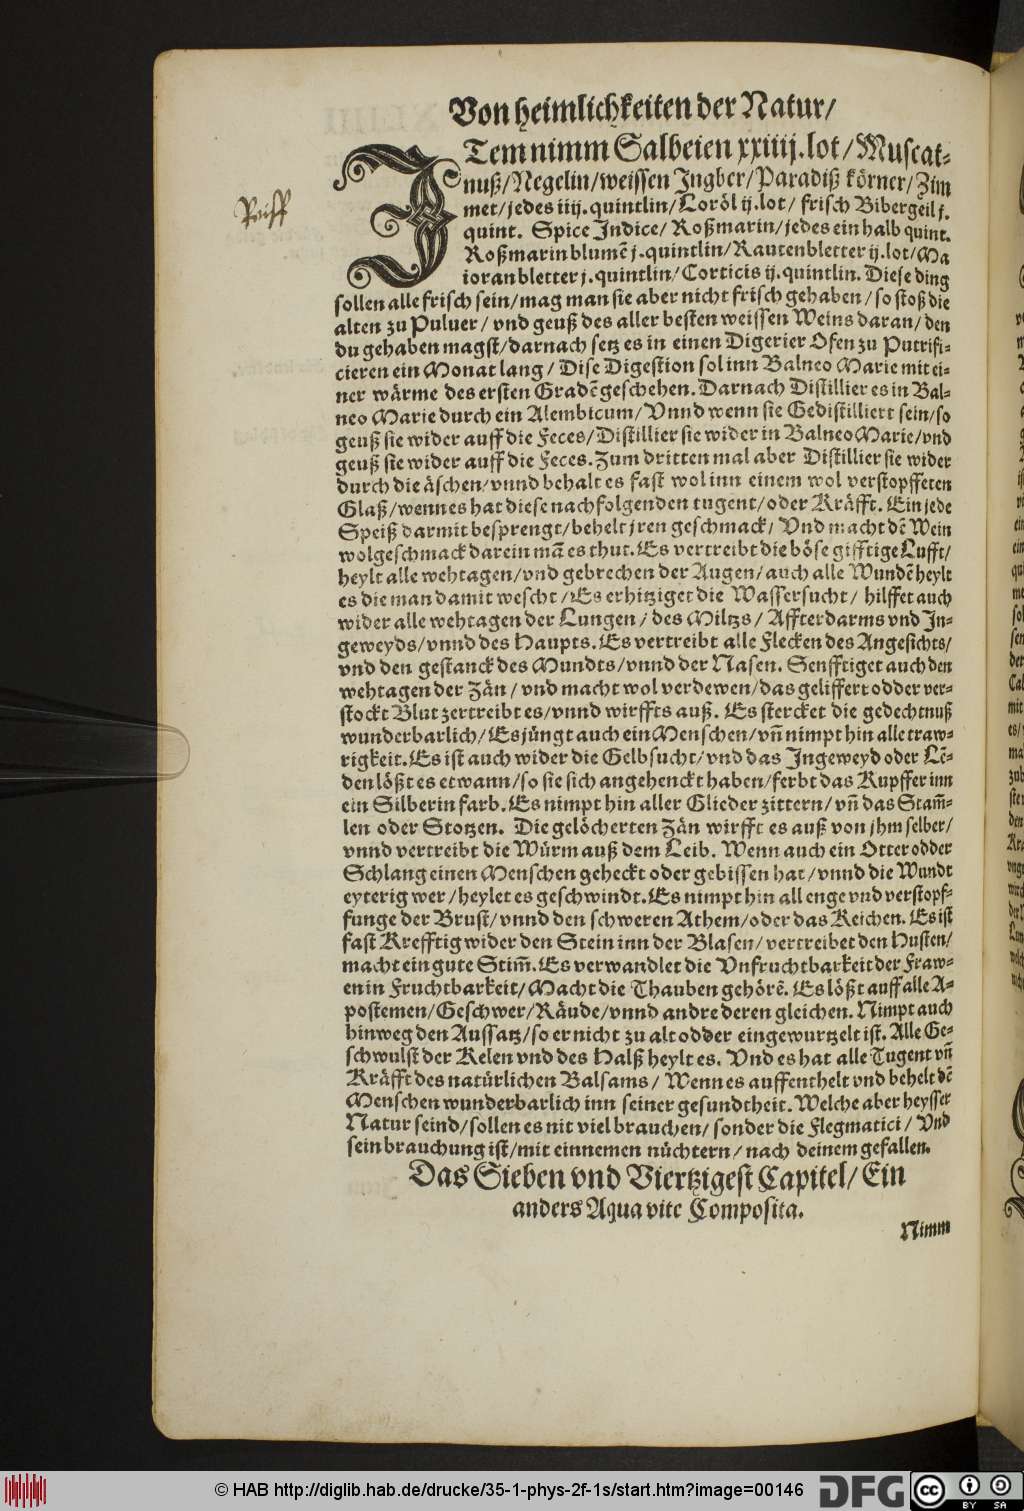 Von heimlichkeiten der Natur/
ITem nimm Salbeien xxiiij.lot/Muscat-
nuß/Negelin/weissen Ingber/Paradiß körner/Zim
met/jedes iiij.quintlin/Loröl ij.lot/ frisch Bibergeil j.
quint. Spice Indice/ Roßmarin/jedes ein halb quint.
Roßmarin blumẽ j.quintlin/Rautenbletter ij.lot/Ma
ioranbletter j.quintlin/Corticis ij.quintlin. Diese ding
sollen alle frisch sein/mag man sie aber nicht frisch gehaben/so stoß die
alten zu Puluer/ vnd geuß des aller besten weissen Weins daran/ den
du gehaben magst/darnach setz es in einen Digerier Ofen zu Putrifi-
cieren ein Monat lang/ Dise Digestion sol inn Balneo Marie mit ei-
ner wärme des ersten Gradẽ geschehen. Darnach Distillier es in Bal-
neo Marie durch ein Alembicum/ Vnnd wenn sie Gedistilliert sein/so
geuß sie wider auff die Feces/Distillier sie wider in Balneo Marie/vnd
geuß sie wider auff die Feces. Zum dritten mal aber Distillier sie wider
durch die äschen/vnnd behalt es fast wol inn einem wol verstopffeten
Glaß/wenn es hat diese nachfolgenden tugent/oder Kräfft. Ein jede
Speiß darmit besprengt/behelt jren geschmack/ Vnd macht dẽ Wein
wolgeschmack darein mã es thut. Es vertreibt die böse gifftige Lufft/
heylt alle wehtagen/vnd gebrechen der Augen/auch alle Wundẽ heylt
es die man damit wescht/Es erhitziget die Wassersucht/ hilffet auch
wider alle wehtagen der Lungen/ des Miltzs/ Affterdarms vnd In-
geweyds/vnnd des Haupts. Es vertreibt alle Flecken des Angesichts/
vnd den gestanck des Mundts/vnnd der Nasen. Senfftiget auch den
wehtagen der Zän/ vnd macht wol verdewen/das geliffert odder ver-
stockt Blut zertreibt es/vnnd wirffts auß. Es stercket die gedechtnuß
wunderbarlich/Es jüngt auch ein Menschen/vñ nimpt hin alle traw-
rigkeit. Es ist auch wider die Gelbsucht/vnd das Ingeweyd oder Lẽ-
den lößt es etwann/so sie sich angehenckt haben/ferbt das Kupffer inn
ein Silberin farb. Es nimpt hin aller Glieder zittern/ vñ das Stam̃-
len oder Stotzen. Die gelöcherten Zän wirfft es auß von jhm selber/
vnnd vertreibt die Würm auß dem Leib. Wenn auch ein Otter odder
Schlang einen Menschen geheckt oder gebissen hat/vnnd die Wundt
eyterig wer/heylet es geschwindt. Es nimpt hin all enge vnd verstopf-
funge der Brust/vnnd den schweren Athem/oder das Reichen. Es ist
fast Krefftig wider den Stein inn der Blasen/vertreibet den Husten/
macht ein gute Stim̃. Es verwandlet die Vnfruchtbarkeit der Fraw-
en in Fruchtbarkeit/Macht die Thauben gehörẽ. Es lößt auff alle A-
postemen/Geschwer/Räude/vnnd andre deren gleichen. Nimpt auch
hinweg den Aussatz/so er nicht zu alt odder eingewurtzelt ist. Alle Ge-
schwulst der Kelen vnd des Halß heylt es. Vnd es hat alle Tugent vñ
Kräfft des natürlichen Balsams/ Wenn es auffenthelt vnd behelt dẽ
Menschen wunderbarlich inn seiner gesundtheit. Welche aber heysser
Natur seind/sollen es nit viel brauchen/ sonder die Flegmatici/ Vnd
sein brauchung ist/mit einnemen nüchtern/ nach deinem gefallen.
Das Sieben vnd Viertzigest Capitel/ Ein
anders Aqua vite Composita.
Nimm
© HAB http://diglib.hab.de/drucke/35-1-phys-2f-1s/start.htm?image=00146
DFG
cc BY SA